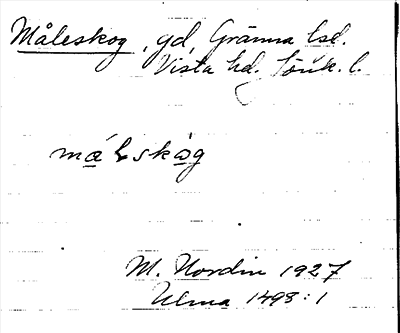 Måleskog, gd, Gränna lsd.
Vista hd. Jönk. l.
målskog
M. Nordin 1927
Ulma 1498:1